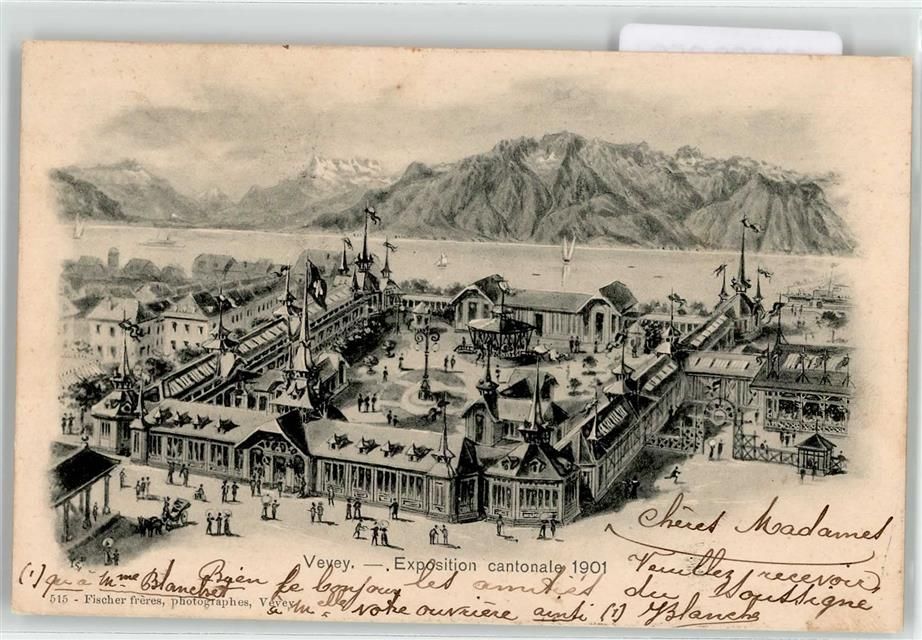 Chères Madames
Vevey. — Exposition cantonale 1901
Veuillez recevoir
(1) qu'à Mme Blanchet
Bien le bonjour les amitiés du soussigné
515 - Fischer frères, photographes, Vevey
à Mlle votre ouvrière ainsi (1) Blanche